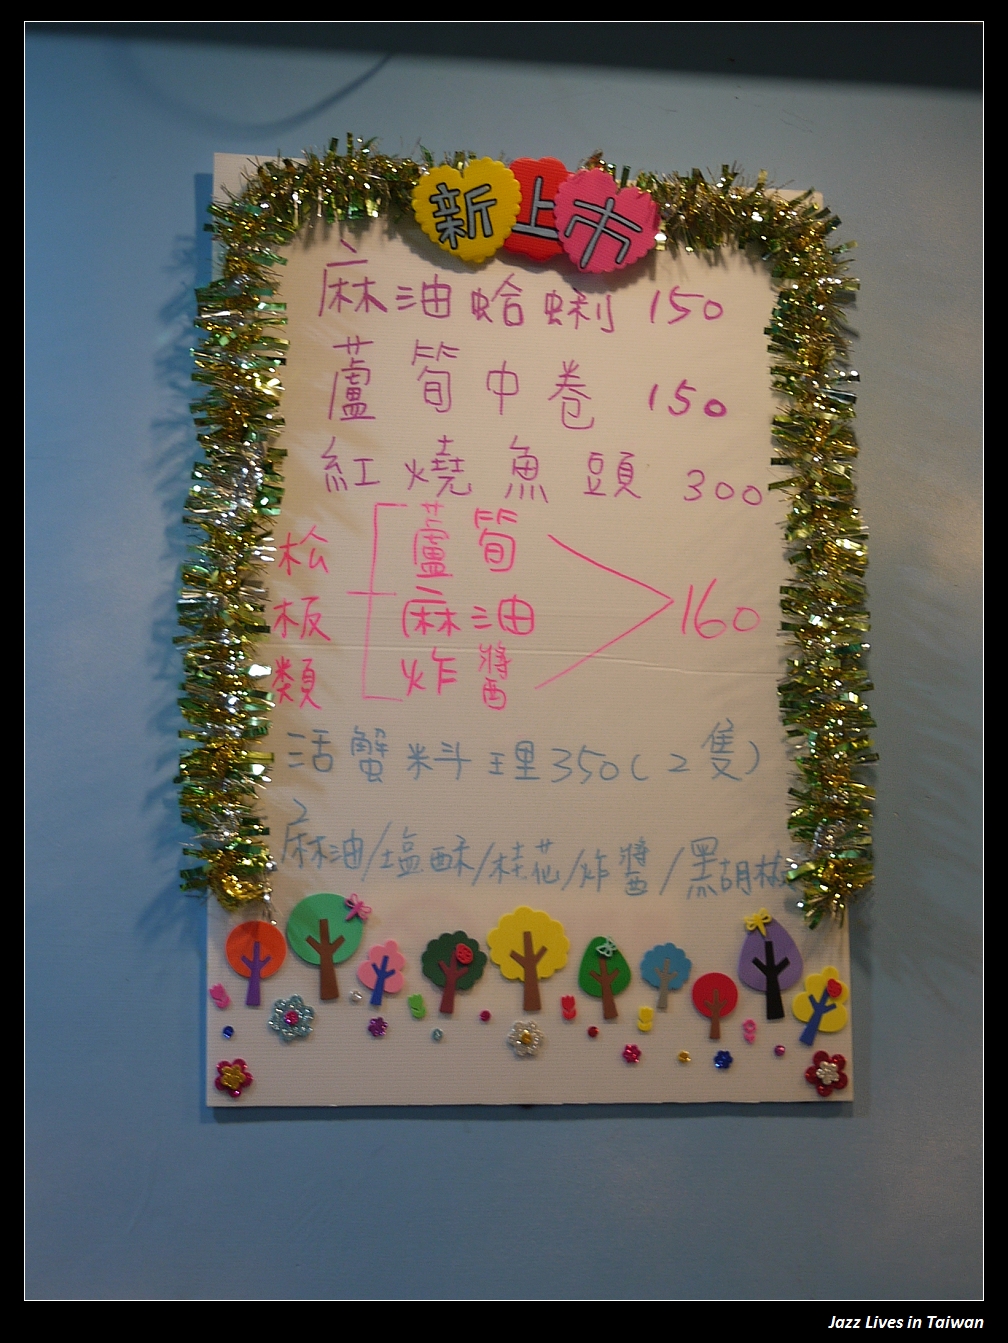 新上市
麻油蛤蜊 150
蘆筍中卷 150
紅燒魚頭 300
松板類
蘆筍
麻油
炸醬
160
活蟹料理350(2隻)
麻油/塩酥/桂花/炸醬/黑胡椒
Jazz Lives in Taiwan